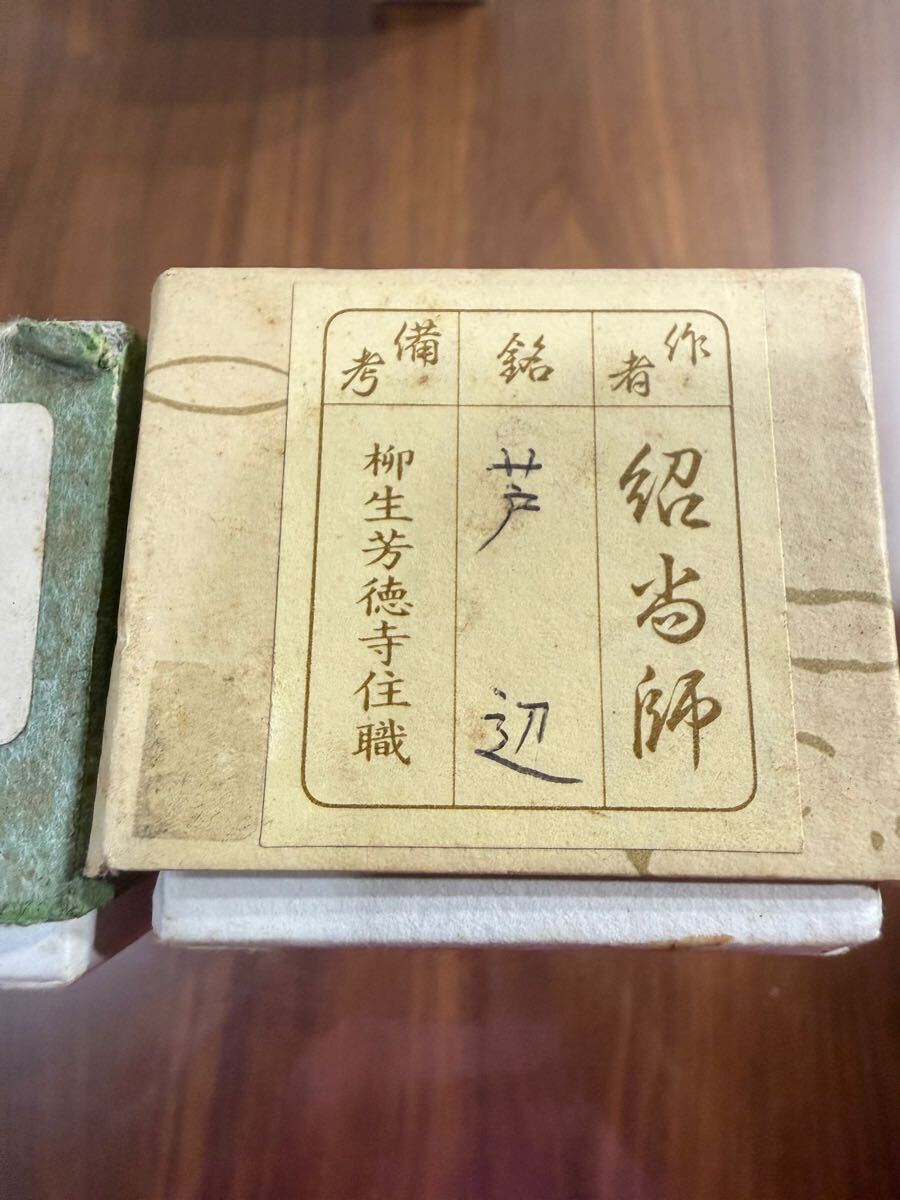 作者
紹尚師
銘
芦辺
備考
柳生芳徳寺住職